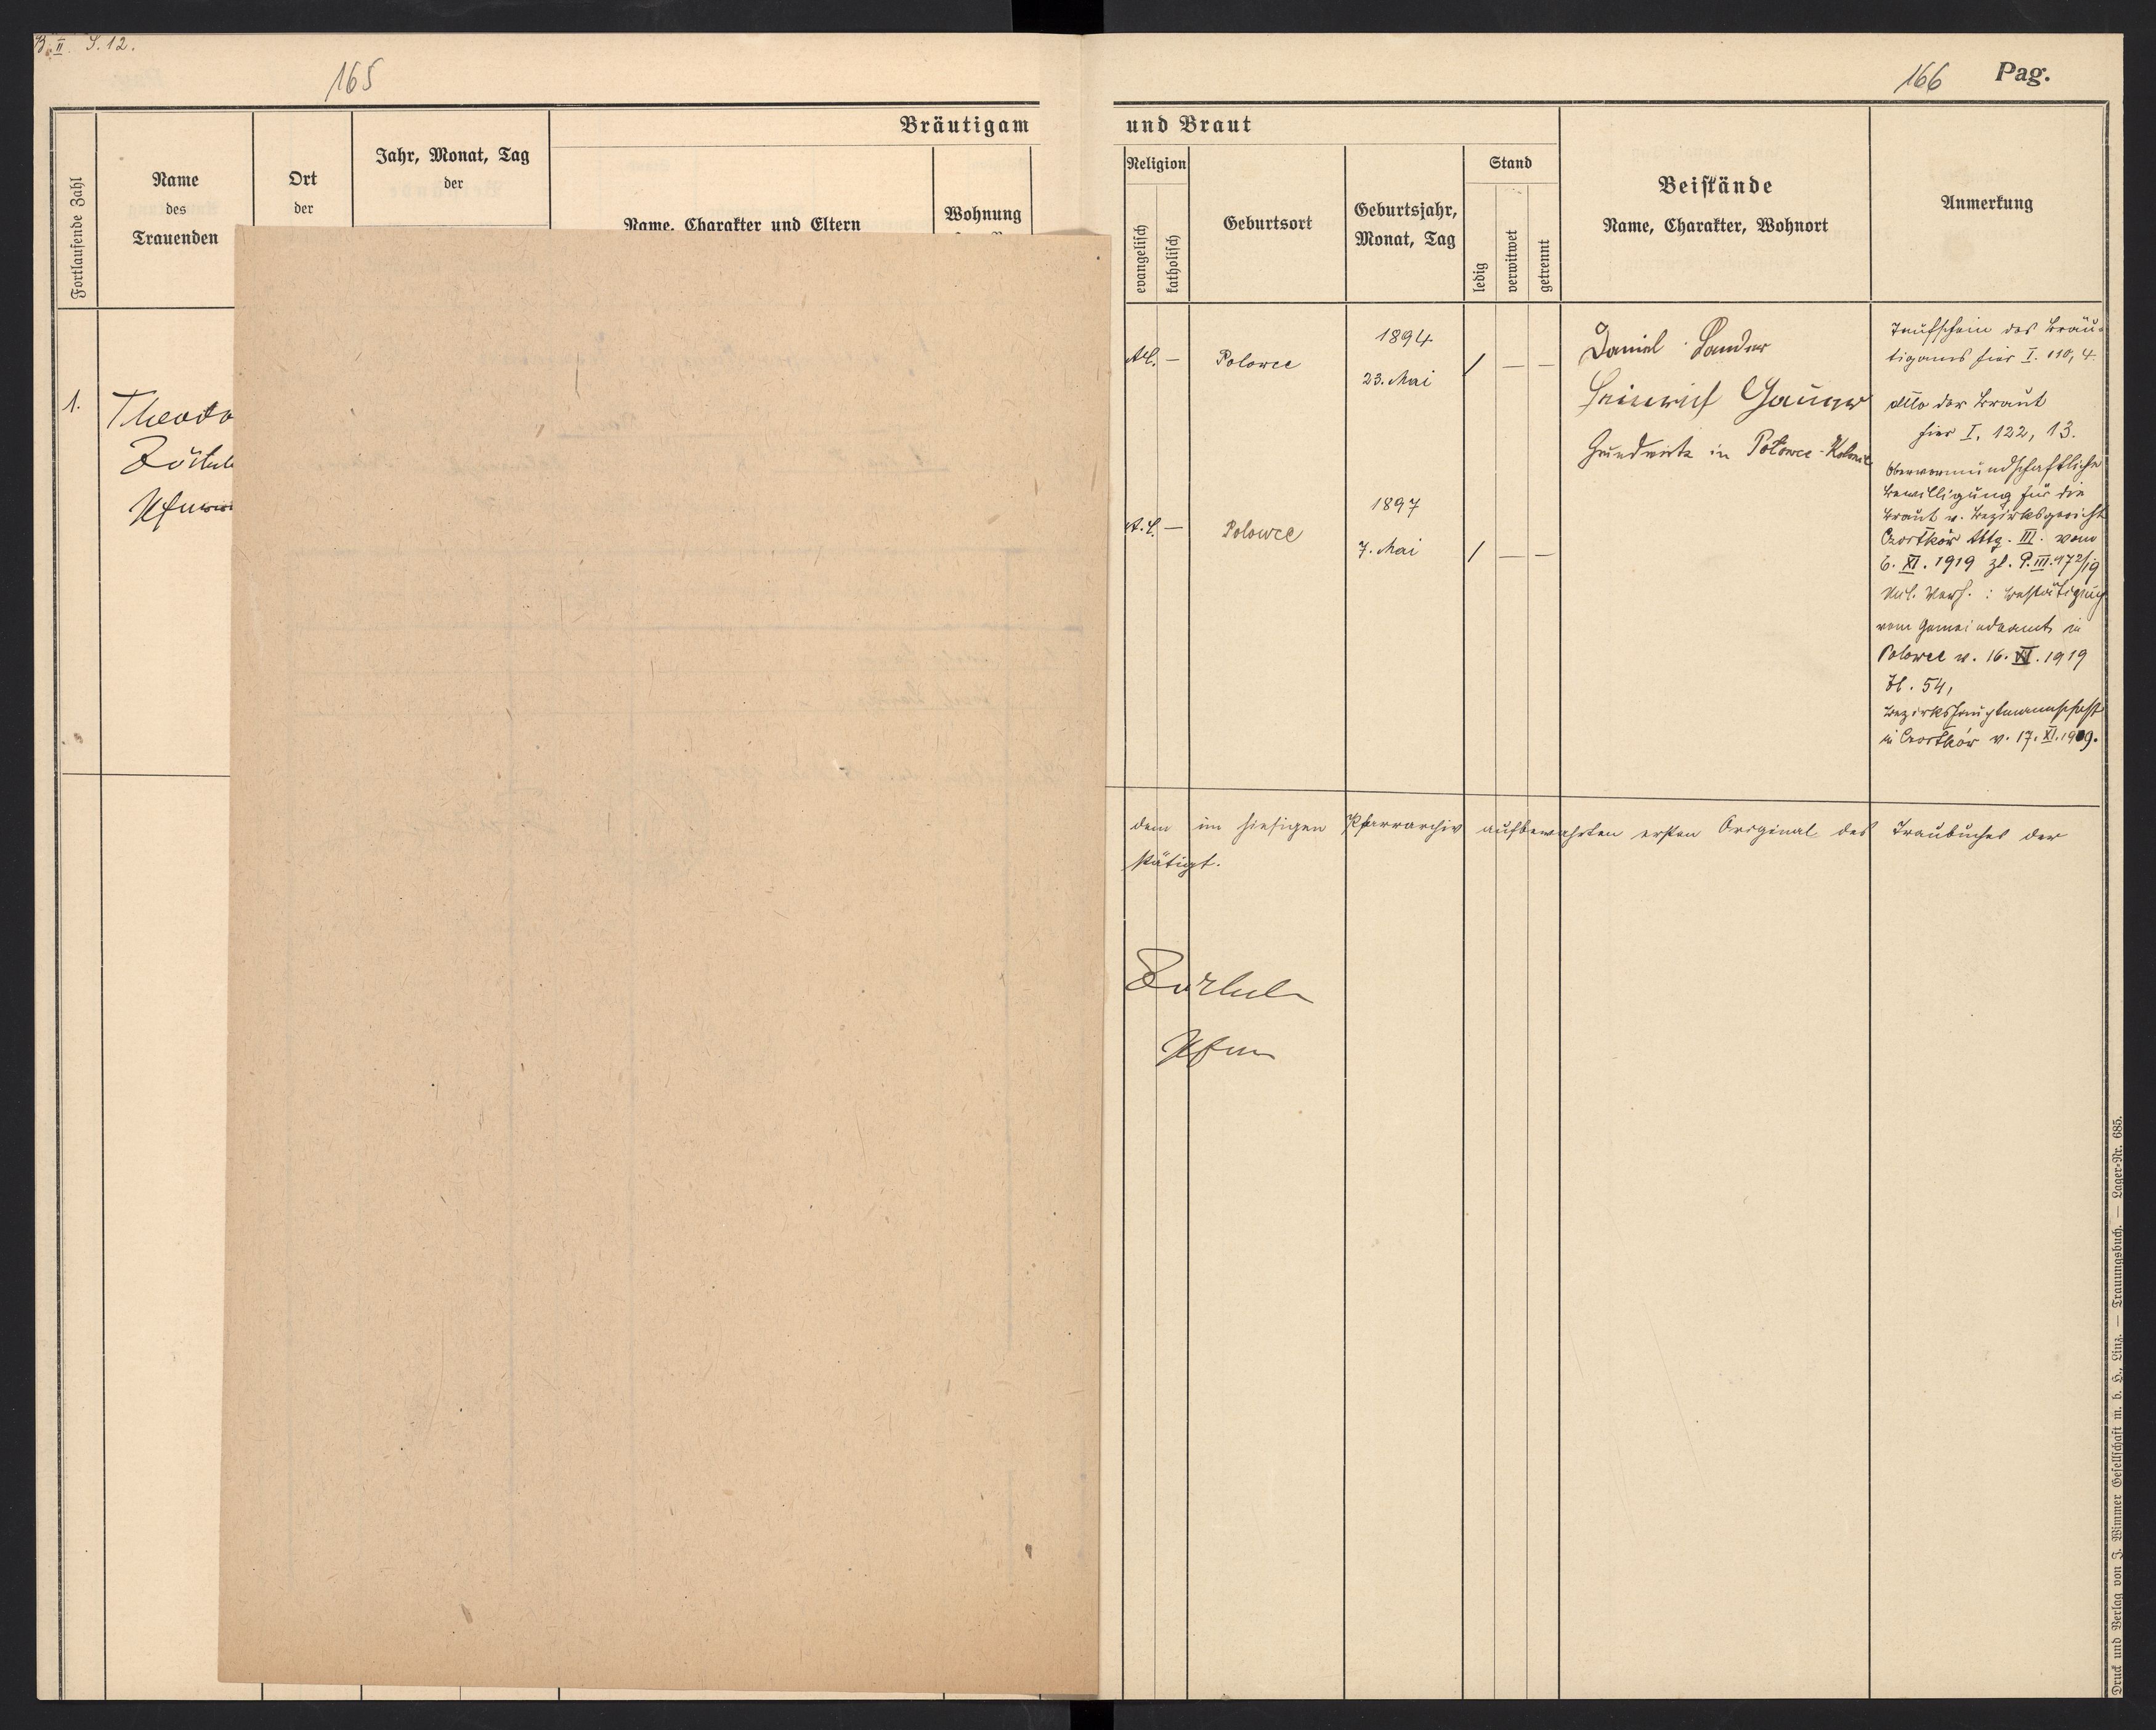 B. II. S. 12.
165
166 Pag.
Bräutigam und Braut
Fortlaufende Zahl
Name
des
Trauenden
Ort
der
Jahr, Monat, Tag
der
Name, Charakter und Eltern
Wohnung
Religion
evangelisch
katholisch
Geburtsort
Geburtsjahr,
Monat, Tag
Stand
ledig
verwitwet
getrennt
Beistände
Name, Charakter, Wohnort
Anmerkung
1.
Theodo
Zöckle
A.C. —
Polowce
1894
23. Mai
/ — —
A.C. —
Polowce
1897
7. Mai
/ — —
Daniel Sander
Heinrich Gauer
Grundwirte in Połowce-Kolonie
Taufschein des Bräu-
tigams hier I. 110, 4.
dtto der Braut
hier I, 122, 13.
Obervormundschaftliche
Bewilligung für die
Braut v. Bezirksgericht
Czortków Abtg. III. vom
6. XI. 1919 zl. P. III. 972/19
: Bestätigung
vom Gemeindeamte in
Polowce v. 16. XI. 1919
Zl. 54,
Bezirkshauptmannschaft
in Czortków v. 17. XI. 1919.
dem im hiesigen Pfarrarchiv aufbewahrten ersten Original des Traubuches der
stätigt.
Zöckler
Pfr.
Druck und Verlag von J. Wimmer Gesellschaft m. b. H., Linz. — Trauungsbuch. — Lager-Nr. 685.